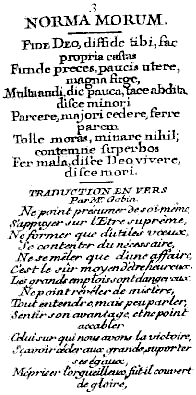 3
NORMA MORUM.
FIDE DEO, diffide tibi, fac
propria castas
Funde preces, paucis utere,
magna fuge,
Multa audi, dic pauca, tace abdita,
disce minori
Parcere, majori cedere, ferre
parem
Tolle moras, minare nihil;
contemne superbos
Fer mala, disce Deo vivere,
disce mori.
TRADUCTION EN VERS
Par Mr. Gobin.
Ne point présumer de soi-même,
S'appuyer sur l'Etre suprême,
Ne former que d'utiles vœux,
Se contenter du nécessaire,
Ne se mêler que d'une affaire,
C'est le sûr moyen d'etre heureux.
Les grands emplois sont dangereux
Ne point révéler de mistère,
Tout entendre, mais peu parler,
Sentir son avantage, et ne point
accabler
Celui sur qui nous avons la victoire,
Sçavoir céder aux grands, suporter
ses égaux,
Mépriser l'orgueilleux fut-il couvert
de gloire,